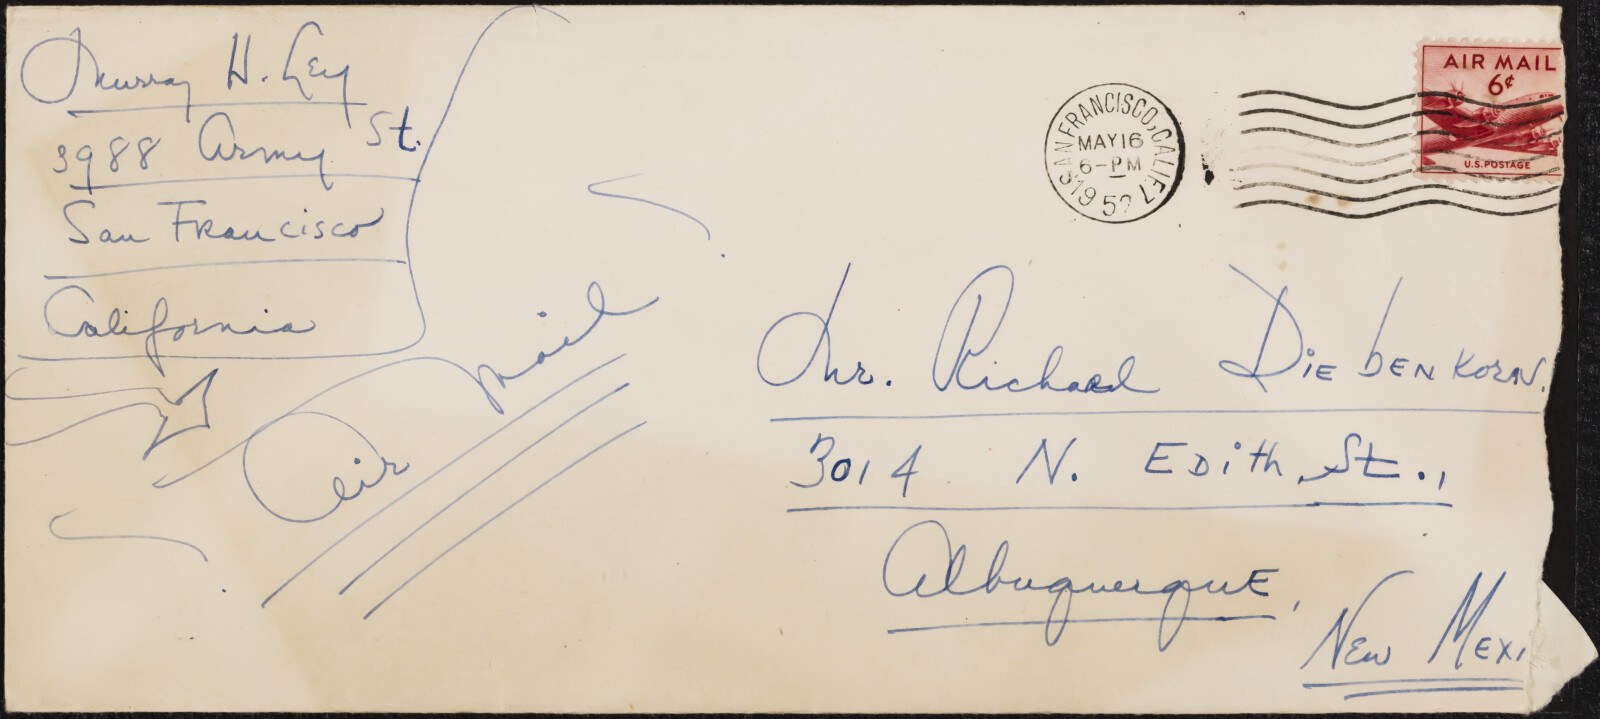 Murray H. Ley
3988 Army St.
San Francisco
California
Air mail
SAN FRANCISCO, CALIF.
MAY 16
6-PM
195
AIR MAIL
6¢
U.S. POSTAGE
Mr. Richard Diebenkorn.
3014 N. Edith, St.,
Albuquerque,
New Mexi